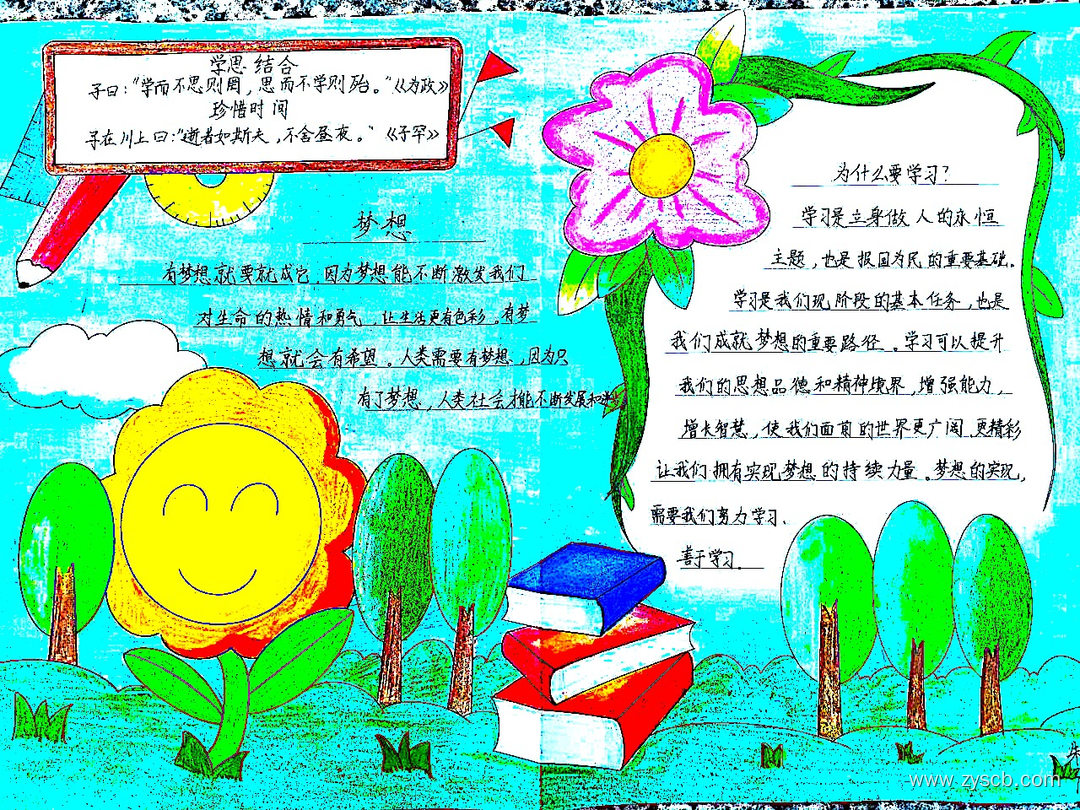 学思结合
子曰："学而不思则罔，思而不学则殆。"《为政》
珍惜时间
子在川上曰："逝者如斯夫，不舍昼夜。"《子罕》
梦想
有梦想就要就成它，因为梦想能不断激发我们
对生命的热情和勇气，让生活更有色彩。有梦
想就会有希望。人类需要有梦想，因为只
有了梦想，人类社会才能不断发展和
为什么要学习？
学习是立身做人的永恒
主题，也是报国为民的重要基础。
学习是我们现阶段的基本任务，也是
我们成就梦想的重要路径。学习可以提升
我们的思想品德和精神境界，增强能力，
增长智慧，使我们面前的世界更广阔 更精彩
让我们拥有实现梦想的持续力量。梦想的实现，
需要我们努力学习、
善于学习。
www.zyscb.com